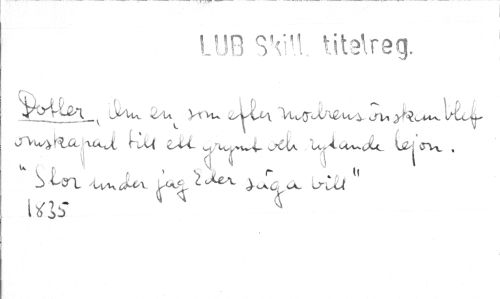 LUB Skill. titelreg.
Dotter, Om en, som efter modrens önskan blef
omskapad till ett grymt och rytande lejon.
"Stor under jag Eder säga vill"
1835